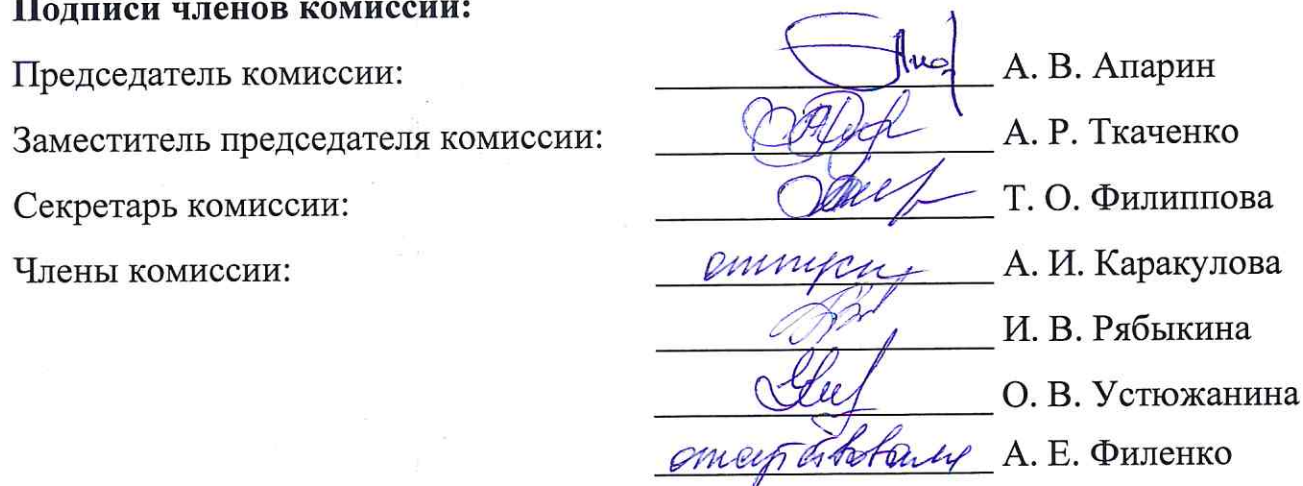 Подписи членов комиссии:
Председатель комиссии: А. В. Апарин
Заместитель председателя комиссии: А. Р. Ткаченко
Секретарь комиссии: Т. О. Филиппова
Члены комиссии: отпуск А. И. Каракулова
И. В. Рябыкина
О. В. Устюжанина
отсутствовала А. Е. Филенко